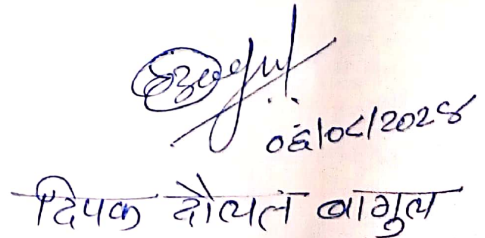 ०६/०८/२०२४
दिपक दौलत बागुल